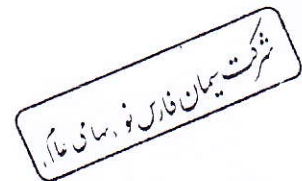 شرکت سیمان فارس نو «سهامی عام»